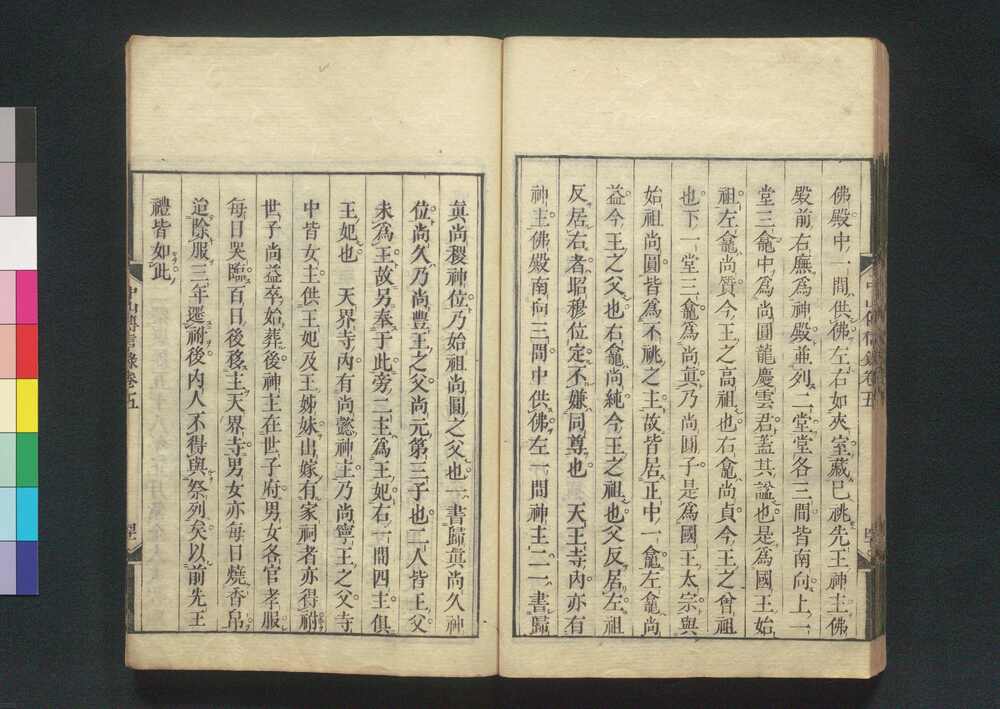 佛殿中一間供佛左右如夾室藏已祧先王神主佛
殿前右廡為神殿並列二堂堂各三間皆南向上一
堂三龕中為尚圓龍慶雲君蓋其謚也是為國王始
祖左龕尚質今王之高祖也右龕尚貞今王之曾祖
也下一堂三龕為尚真乃尚圓子是為國王太宗與
始祖尚圓皆為不祧之主故皆居正中一龕左龕尚
益今王之父也右龕尚純今王之祖也父反居左祖
反居右者昭穆位定不嫌同尊也 天王寺內亦有
神主佛殿南向三間中供佛左一間神主二一書歸
真尚稷神位乃始祖尚圓之父也一書歸真尚久神
位尚久乃尚豐王之父尚元第三子也二人皆王父
未為王故另奉于此旁二主為王妃右一間四主俱
王妃也 天界寺內有尚懿神主乃尚寧王之父寺
中皆女主供王妃及王姊妹出嫁有家祠者亦得祔
世子尚益卒始葬後神主在世子府男女各官孝服
每日哭臨百日後移主天界寺男女亦每日燒香帛
迨除服三年遷祔後內人不得與祭列矣以前先王
禮皆如此
中山傳信錄卷五